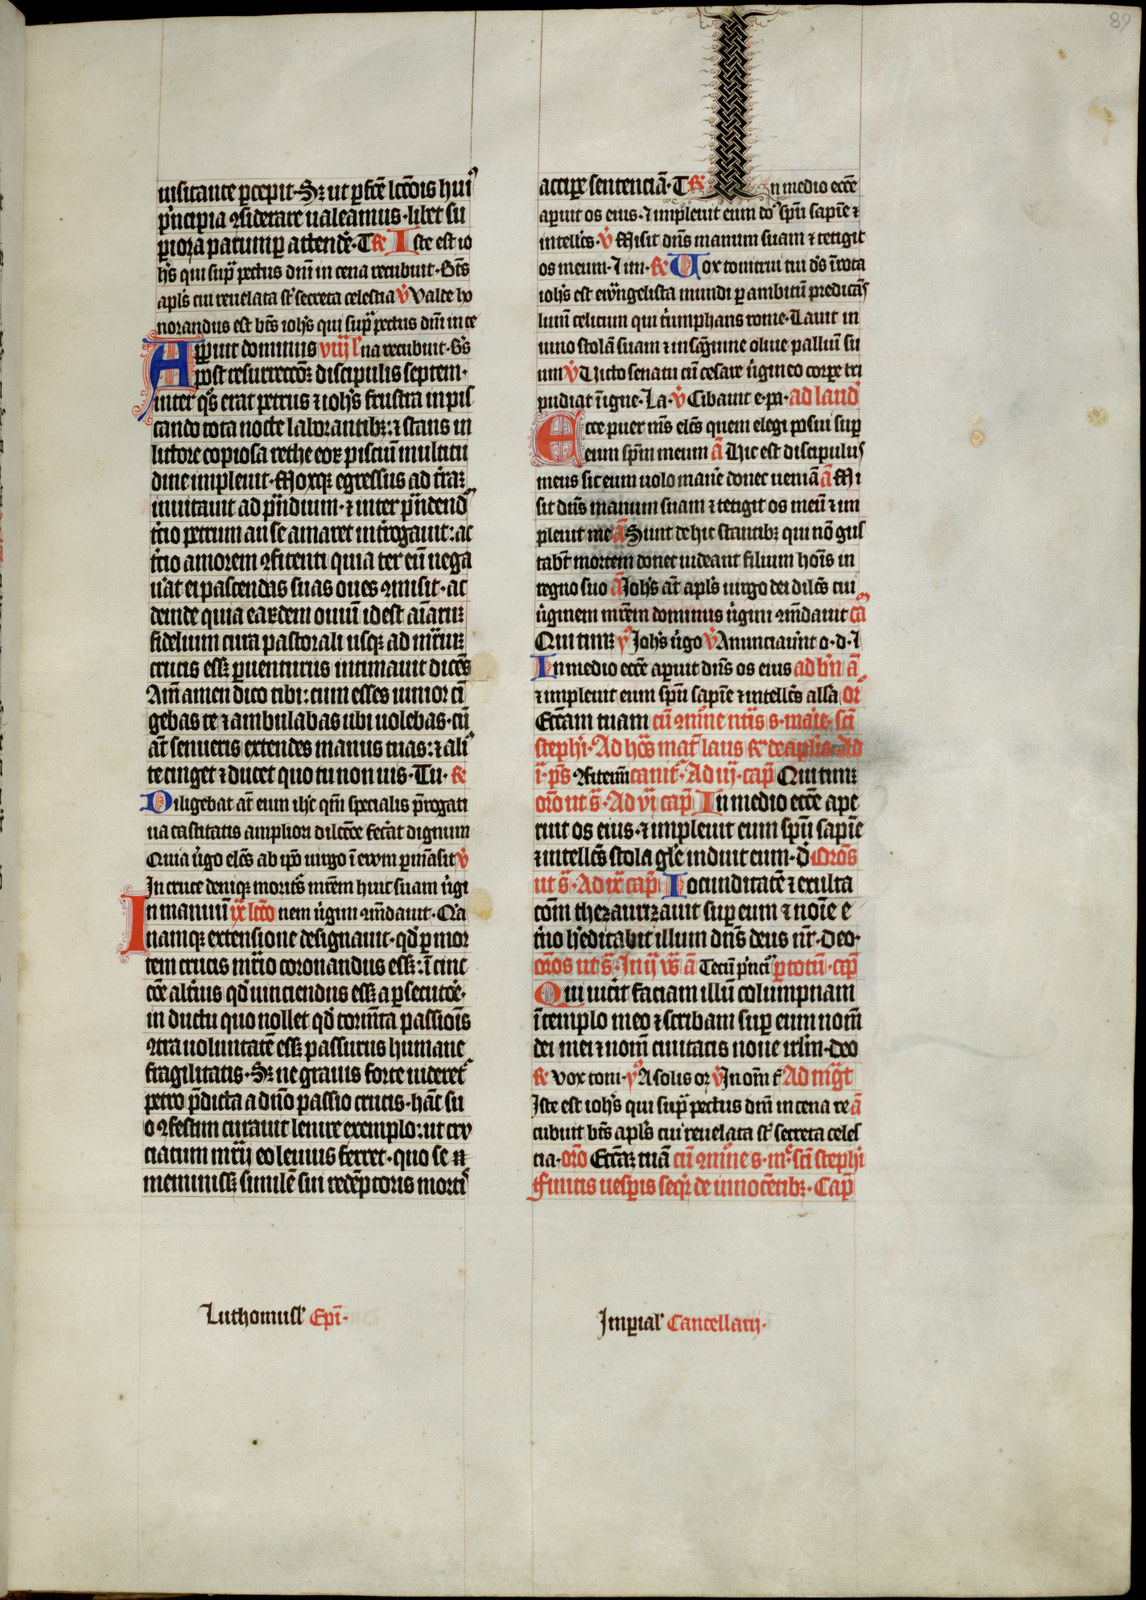 89
uisitante ꝑcepit· Sꝫ ut ꝑfcē lcc̄ois huiꝰ
pͥncipia ꝯsiderare ualeamus· libet su
ꝑiora paꝝ attendēˀ· T R̃ Iste est io
hˀs qui supᷓ pectus dnī in cena recubuit· Btˉs
apl̉s cui reuelata sˉt secreta celestia ℣ Valde ho
norandus est btˉs iohˀs qui supᷓ pectus dnī in ce
Apparuit dominus viij l na recubuit· Btˉs
post resurreccōꝫ discipulis septem·
inter q̊s erat petrus ⁊ iohˀs frustra in pis
cando tota nocte laborantibꝫ: ⁊ stans in
littore copiosa rethe eoꝝ pisciū multitu
dine impleuit· Moxqꝫ egressus ad tˀraꝫ
inuitauit ad pᷓndium· ⁊ inter pᷓndendˉ
tͥcio petrum an se amaret intˀrogauit: ac
tͥcio amorem ꝯfitenti quia ter eū nega
uˀat ei pascendas suas oues ꝯmisit· ac
deinde quia earūdem ouiū id est aīaꝝ
fidelium cura pastorali usqꝫ ad mˀituꝫ
crucis essꝫ ꝑuenturus intimauit dicēs
Amˉ amen dico tibi: cum esses iunior cī
gebas te ⁊ ambulabas ubi uolebas· cū
aūt senueris extendes manus tuas: ⁊ aliꝰ
te cinget ⁊ ducet quo tu non uis· Tu· R̃
Diligebat aūt eum ihˀc qm̄ specialis pˀrogati
ua castitatis ampliori dilcc̄oe fecˀat dignum
Quia uˀgo elcˉs ab ip̄o uirgo ī euum ꝑmāsit ℣
In cruce deniqꝫ moritˀs mr̄em huic suam uˀgi
In manuū ix lcc̄o nem uˀgini ꝯmdauit· Qᷓ
namqꝫ extensione designauit· qd̉ ꝑ mor
tem crucis mˀrio coronandus essꝫ: ī cinc
cōe altˀius qd̉ uinciendus essꝫ a ꝑsecutōe·
in ductu quo nollet qd̉ tormīta passiōis
ꝯtra uoluntatē essꝫ passurus humane
fragilitatis· Sꝫ ne grauis forte uideretˀ
petro pˀdicta a dn̄o passio crucis· hāc su
o ꝯfestim curauit lenire exemplo: ut cru
ciatum mr̄ii eo leuius ferret· quo se re
meminissꝫ similē sui redēptoris mortiˀ
accipe sentenciā· T R̃ In medio ecc̄e
aperuit os eius· ⁊ impleuit eum dōˀ spū sapie ⁊
intellcˉs· ℣ Misit dn̄s manum suam ⁊ tetigit
os meum· ⁊ im· R̃ Vox tonitrui tui dˉs ī rota
iohˀs est ewˉngelista mundi ꝑ ambitū predicāˀs
lumē celicum qui tͥumphans rome· Lauit in
uino stolā suam ⁊ in sāgͥuine oliue palliū su
um ℣ Uicto senatu cū cesare uˀgineo corꝑe tri
pudiat ī igne· La· ℣ Cibauit e· pa· ad laudˉ
Ecce puer mˉs elcˉs quem elegi posui supˀ
eum spm̄ meum ā Hic est discipulus
meus sic eum uolo manēˀ donec ueniā ā Mi
sit dn̄s manum suam ⁊ tetigit os meū ⁊ im
pleuit me ā Sunt de hic stantibꝫ qui nō gus
tabt̄ mortem donec uideant filium hoīs in
regno suo ā Iohˀs aūt apl̉s uirgo dei dilcˉs cui
uˀginem mr̄em dominus uˀgini ꝯmdauit ca
Qui timꝫ yˀ Iohˀs uˀgo ℣ Annunciauˀnt o· d· I
In medio ecc̄e aperuit dn̄s os eius ad bn̄ ā
⁊ impleuit eum spū sapie ⁊ intellcˉs alla or̄
Ecc̄am tuam cū ꝯmˉne n̄tis s· marˀie· sc̄i
stephi· Ad hōs matˀ laus R̃ de apl̉is· Ad
i· pˉs ꝯfitemi canitˀ· Ad iij· cap̄ Qui timꝫ
or̄o ut sˉ· Ad vi cap̄ In medio ecc̄e ape
ruit os eius· ⁊ impleuit eum spū sapie
⁊ intellcˉs stola gl̉e induit eum· dˉ Orōˉs
ut sˉ· Ad ix cap̄ Iocunditatē ⁊ exulta
cōm thezaurizauit super eum ⁊ noīe e
tˀno hˀeditabit illum dn̄s deus nr̄· Deo·
orōˉs ut sˉ· In ij vˉs ā Tecū pͥnciꝰ ꝑ totū· cap̄
Qui uicˀit faciam illū columpnam
ī templo meo ⁊ scribam super eum nomˉ
dei mei ⁊ nomˉ ciuitatis noue irlm̄· Deo
R̃ vox toni· yˀ A solis or ℣ In om̄ tˀ Ad mḡt
Iste est iohˀs qui supᷓ pectus dnī in cena re ā
cubuit btˉs apl̉s cui reuelata sˉt secreta celes
tia· or̄o Ecc̄aꝫ tuā cū ꝯmˉne s· mˉe· sc̄i stephi
Finitis uesꝑis seqˀr de innocētibꝫ· Cap̄
Luthomuslˀ Epī·
Imꝑialˀ Cancellarij·